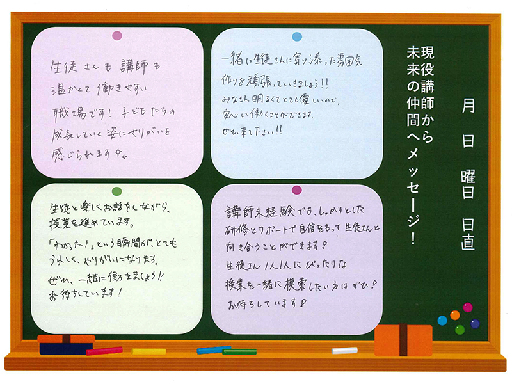 現役講師から
未来の仲間へメッセージ！
月 日 曜日 日直
生徒さんも講師も
温かくて働きやすい
職場です！子どもたちの
成長していく姿にやりがいを
感じられますよ。
一緒に生徒さんに寄り添った雰囲気
作りを頑張っていきましょう!!
みなさん明るくてとても優しいので、
安心して働くことができます。
ぜひ来て下さい!!
生徒と楽しくお話をしながら、
授業を進めています。
「わかった！」という瞬間がとても
うれしく、やりがいになります。
ぜひ、一緒に働きましょう！
お待ちしています！
講師未経験でも、しっかりとした
研修とサポートで自信をもって生徒さんと
向き合うことができます！
生徒さん1人1人にぴったりな
授業を一緒に模索したい方はぜひ！
お待ちしています！